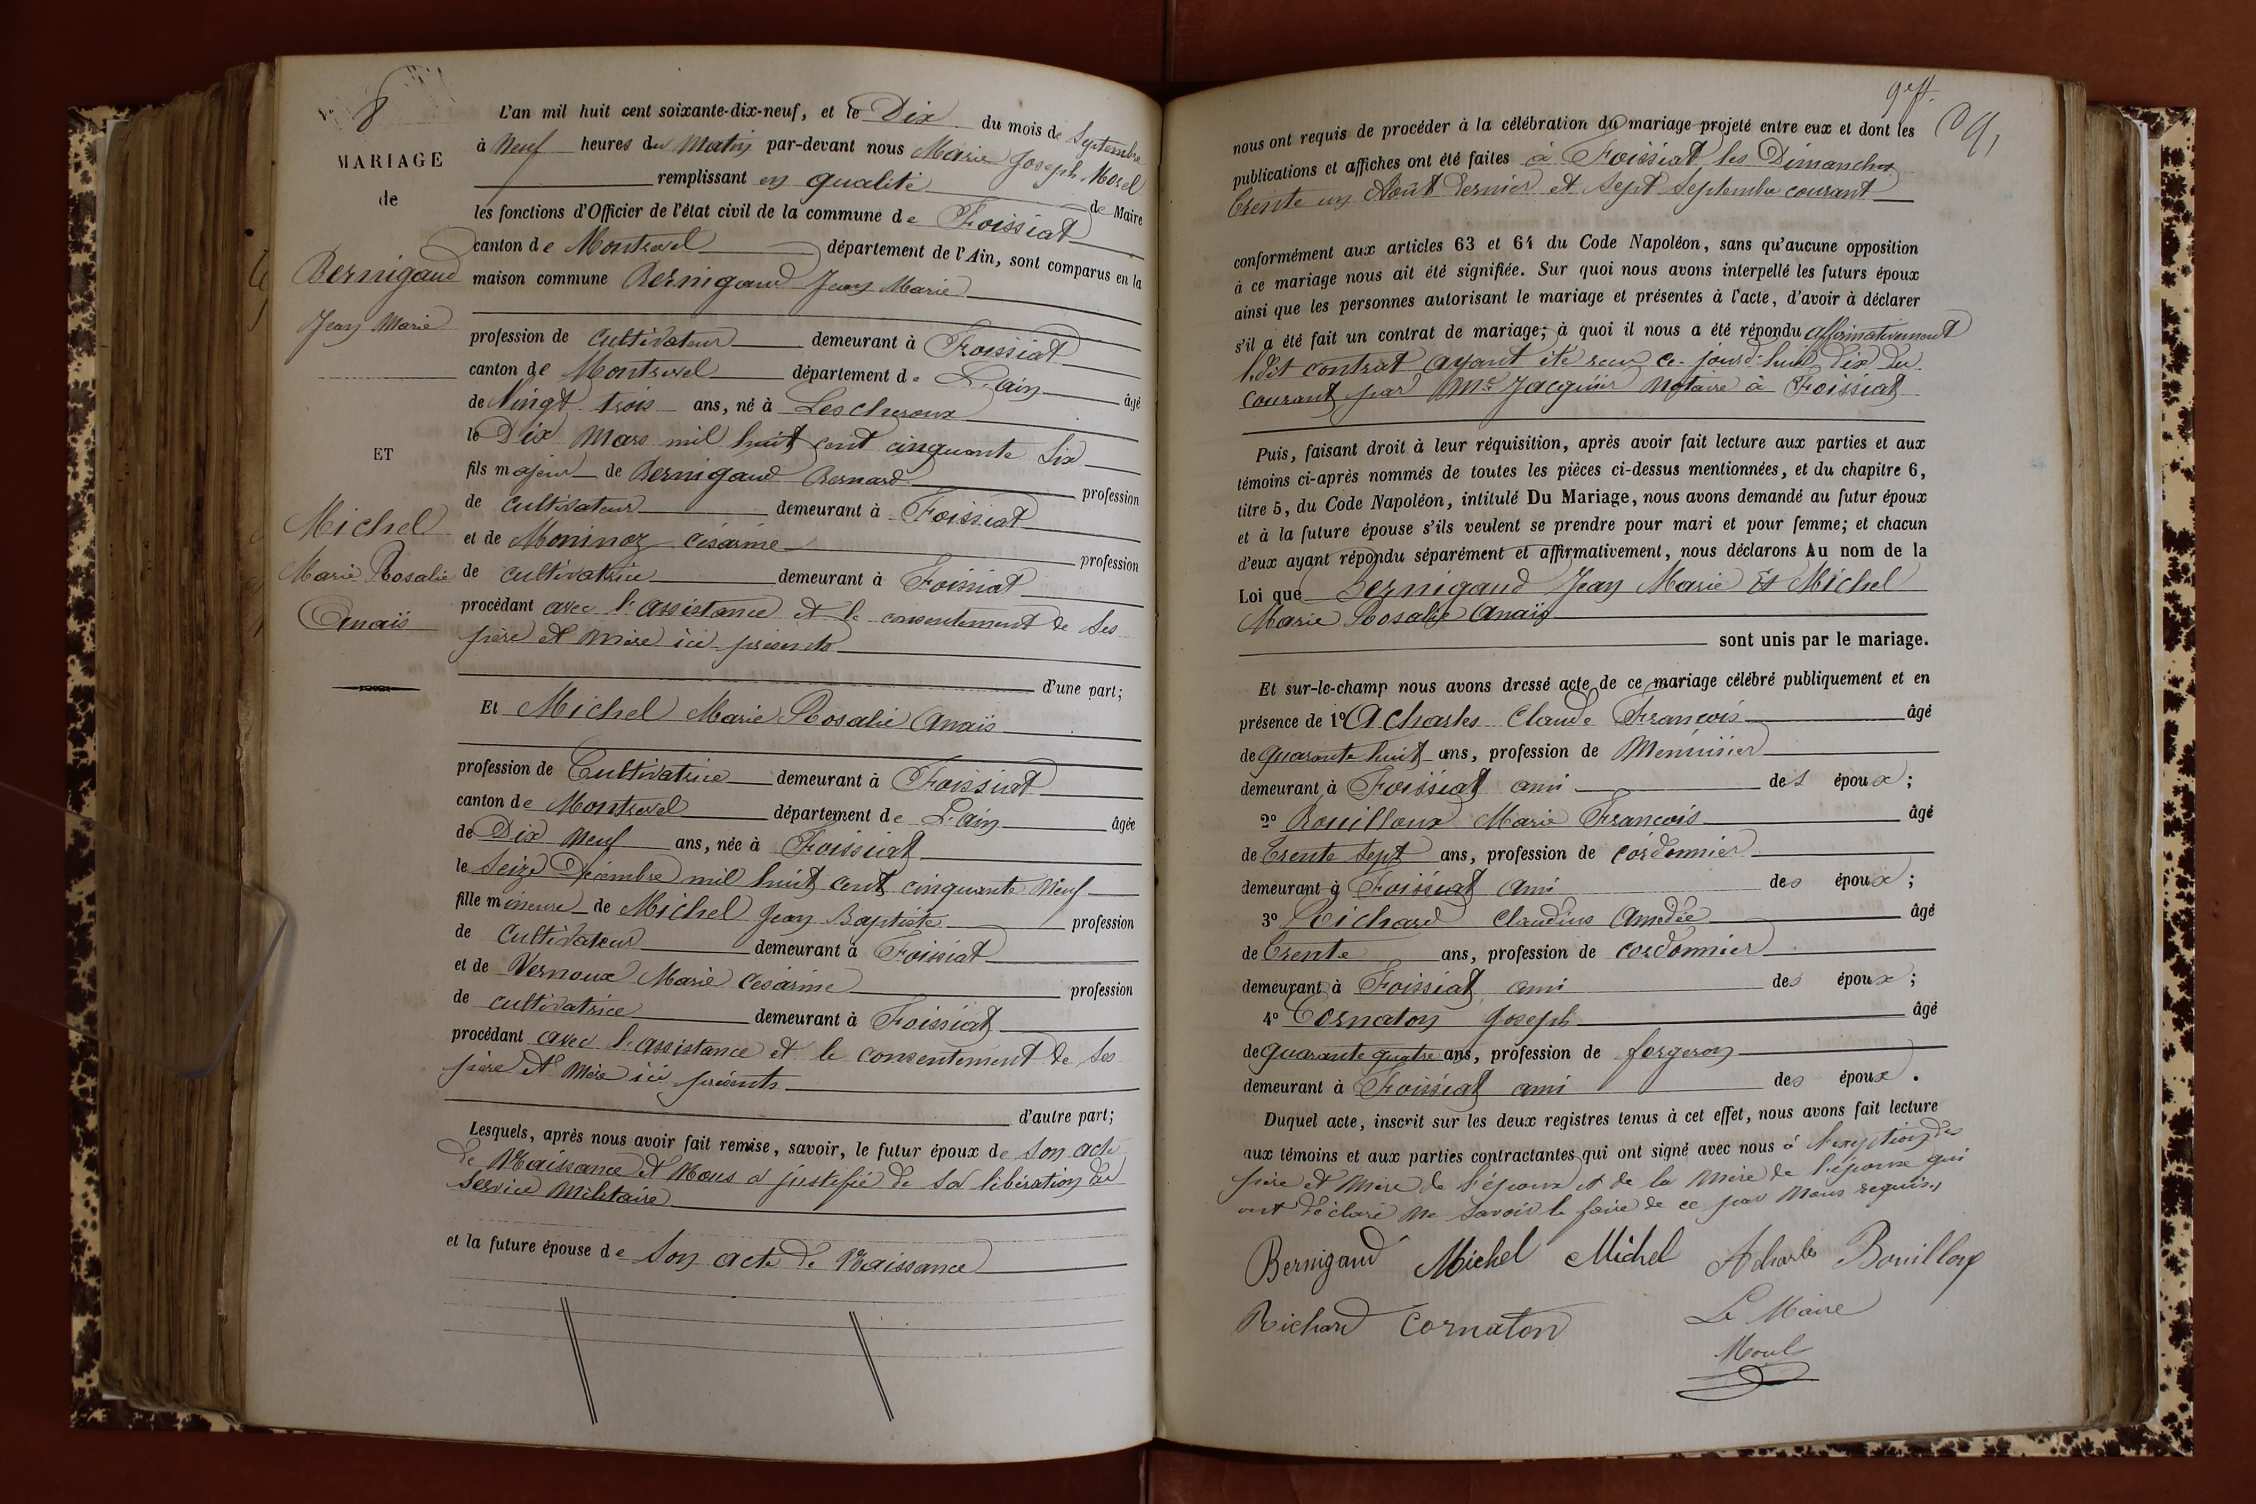 8
MARIAGE
de
Bernigaud
Jean Marie
ET
Michel
Marie Rosalie
Anaïs
L'an mil huit cent soixante-dix-neuf, et le Dix du mois de Septembre
à Neuf heures du Matin par-devant nous Marie Joseph Morel
remplissant en qualité de Maire
les fonctions d'Officier de l'état civil de la commune de Foissiat
canton de Montrevel département de l'Ain, sont comparus en la
maison commune Bernigaud Jean Marie
profession de cultivateur demeurant à Foissiat
canton de Montrevel département de L'ain âgé
de Vingt trois ans, né à Lescheroux
le Dix Mars mil huit cent cinquante Six
fils majeur de Bernigaud Bernard profession
de cultivateur demeurant à Foissiat
et de Moninoz césarine profession
de cultivatrice demeurant à Foissiat
procédant avec l'assistance et le consentement de Ses
père et Mère ici présents
d'une part;
Et Michel Marie Rosalie Anaïs
profession de Cultivatrice demeurant à Foissiat
canton de Montrevel département de L'ain âgée
de Dix Neuf ans, née à Foissiat
le Seize Décembre mil huit cent cinquante Neuf
fille mineure de Michel Jean Baptiste profession
de cultivateur demeurant à Foissiat
et de Vernoux Marie césarine profession
de cultivatrice demeurant à Foissiat
procédant avec l'assistance et le consentement de Ses
père et Mère ici présents
d'autre part;
Lesquels, après nous avoir fait remise, savoir, le futur époux de Son acte
de Naissance et Nous a justifié de sa libération du
Service Militaire
et la future épouse de Son acte de Naissance
nous ont requis de procéder à la célébration du mariage projeté entre eux et dont les
publications et affiches ont été faites à Foissiat les Dimanches
trente un Août dernier et Sept Septembre courant
conformément aux articles 63 et 64 du Code Napoléon, sans qu'aucune opposition
à ce mariage nous ait été signifiée. Sur quoi nous avons interpellé les futurs époux
ainsi que les personnes autorisant le mariage et présentes à l'acte, d'avoir à déclarer
s'il a été fait un contrat de mariage; à quoi il nous a été répondu affirmativement
ledit contrat ayant été reçu ce jourd'hui dix du
courant par Me Jacquier Notaire à Foissiat
Puis, faisant droit à leur réquisition, après avoir fait lecture aux parties et aux
témoins ci-après nommés de toutes les pièces ci-dessus mentionnées, et du chapitre 6,
titre 5, du Code Napoléon, intitulé Du Mariage, nous avons demandé au futur époux
et à la future épouse s'ils veulent se prendre pour mari et pour femme; et chacun
d'eux ayant répondu séparément et affirmativement, nous déclarons Au nom de la
Loi que Bernigaud Jean Marie Et Michel
Marie Rosalie Anaïs
sont unis par le mariage.
Et sur-le-champ nous avons dressé acte de ce mariage célébré publiquement et en
présence de 1º Acharles Claude François âgé
de quarante huit ans, profession de Menuisier
demeurant à Foissiat ami des époux;
2º Bouilloux Marie François âgé
de trente Sept ans, profession de cordonnier
demeurant à Foissiat ami des époux;
3º Richard Claudius Amédée âgé
de trente ans, profession de cordonnier
demeurant à Foissiat ami des époux;
4º Cornaton Joseph âgé
de quarante quatre ans, profession de forgeron
demeurant à Foissiat ami des époux.
Duquel acte, inscrit sur les deux registres tenus à cet effet, nous avons fait lecture
aux témoins et aux parties contractantes qui ont signé avec nous à l'exception des
père et Mère de l'époux et de la Mère de l'épouse qui
ont déclaré Ne Savoir le faire de ce par Nous requis.
Bernigaud Michel Michel Acharles Bouilloux
Richard Cornaton Le Maire
Morel